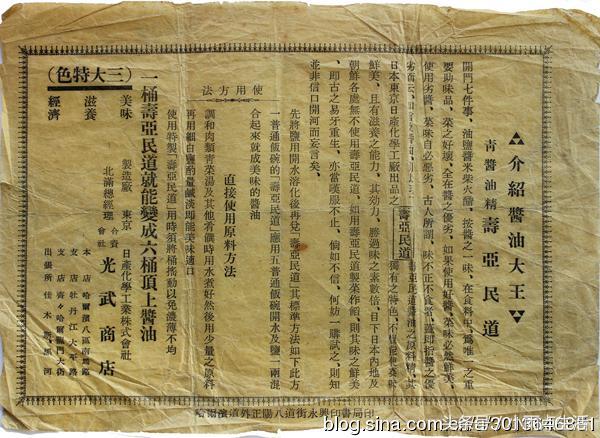 介紹醬油大王
青醬油精 壽亞民道
開門七件事、油鹽醬米柴火醋、按醬之一味、在食料中、爲唯一之重
要助味品、菜之好壞、全在醬之優劣、如果使用好醬、菜味必然鮮美、
使用劣醬、菜味自必惡劣、古人所謂、味不正不食者、蓋即指醬之優
日本東京日産化學工廠出品之 壽亞民道 獨有之特色、不獨能使菜味
鮮美、且有滋養之能力、其効力、勝過味之素數倍、目下日本內地及
朝鮮各處無不使用壽亞民道、如用壽亞民道製菜作餡、則其味之鮮美
、即古之易牙重生、亦當嘆服不止、倘如不信、何妨一購試之、則知
並非信口開河而妄言矣、
使用方法
先將鹽用開水溶化後再兌「壽亞民道」其標準方法如下此方
一普通飯碗的「壽亞民道」應用五普通飯碗開水及鹽一兩混
合起來就成美味的醬油
直接使用原料方法
調和肉類青菜湯及其他肴饌時用水煮好然後用少量之原料
再用細白鹽酌量鹹淡即能美味適口
使用特製「壽亞民道」用時須將桶搖動以免濃薄不均
一桶壽亞民道就能變成六桶頂上醬油
(三大特色)
美味
滋養
經濟
製造廠 東京 日産化學工業株式會社
北滿總經理 合資會社 光武商店
本店 哈爾濱八區南馬路
支店 牡丹江太平路
支店 齊々哈爾龍門大街
出張所 佳木斯 黑河
哈爾濱道外正陽八道街永興印書局印
头条号/小雨点生活
blog.sina.com.cn/u/3013646851